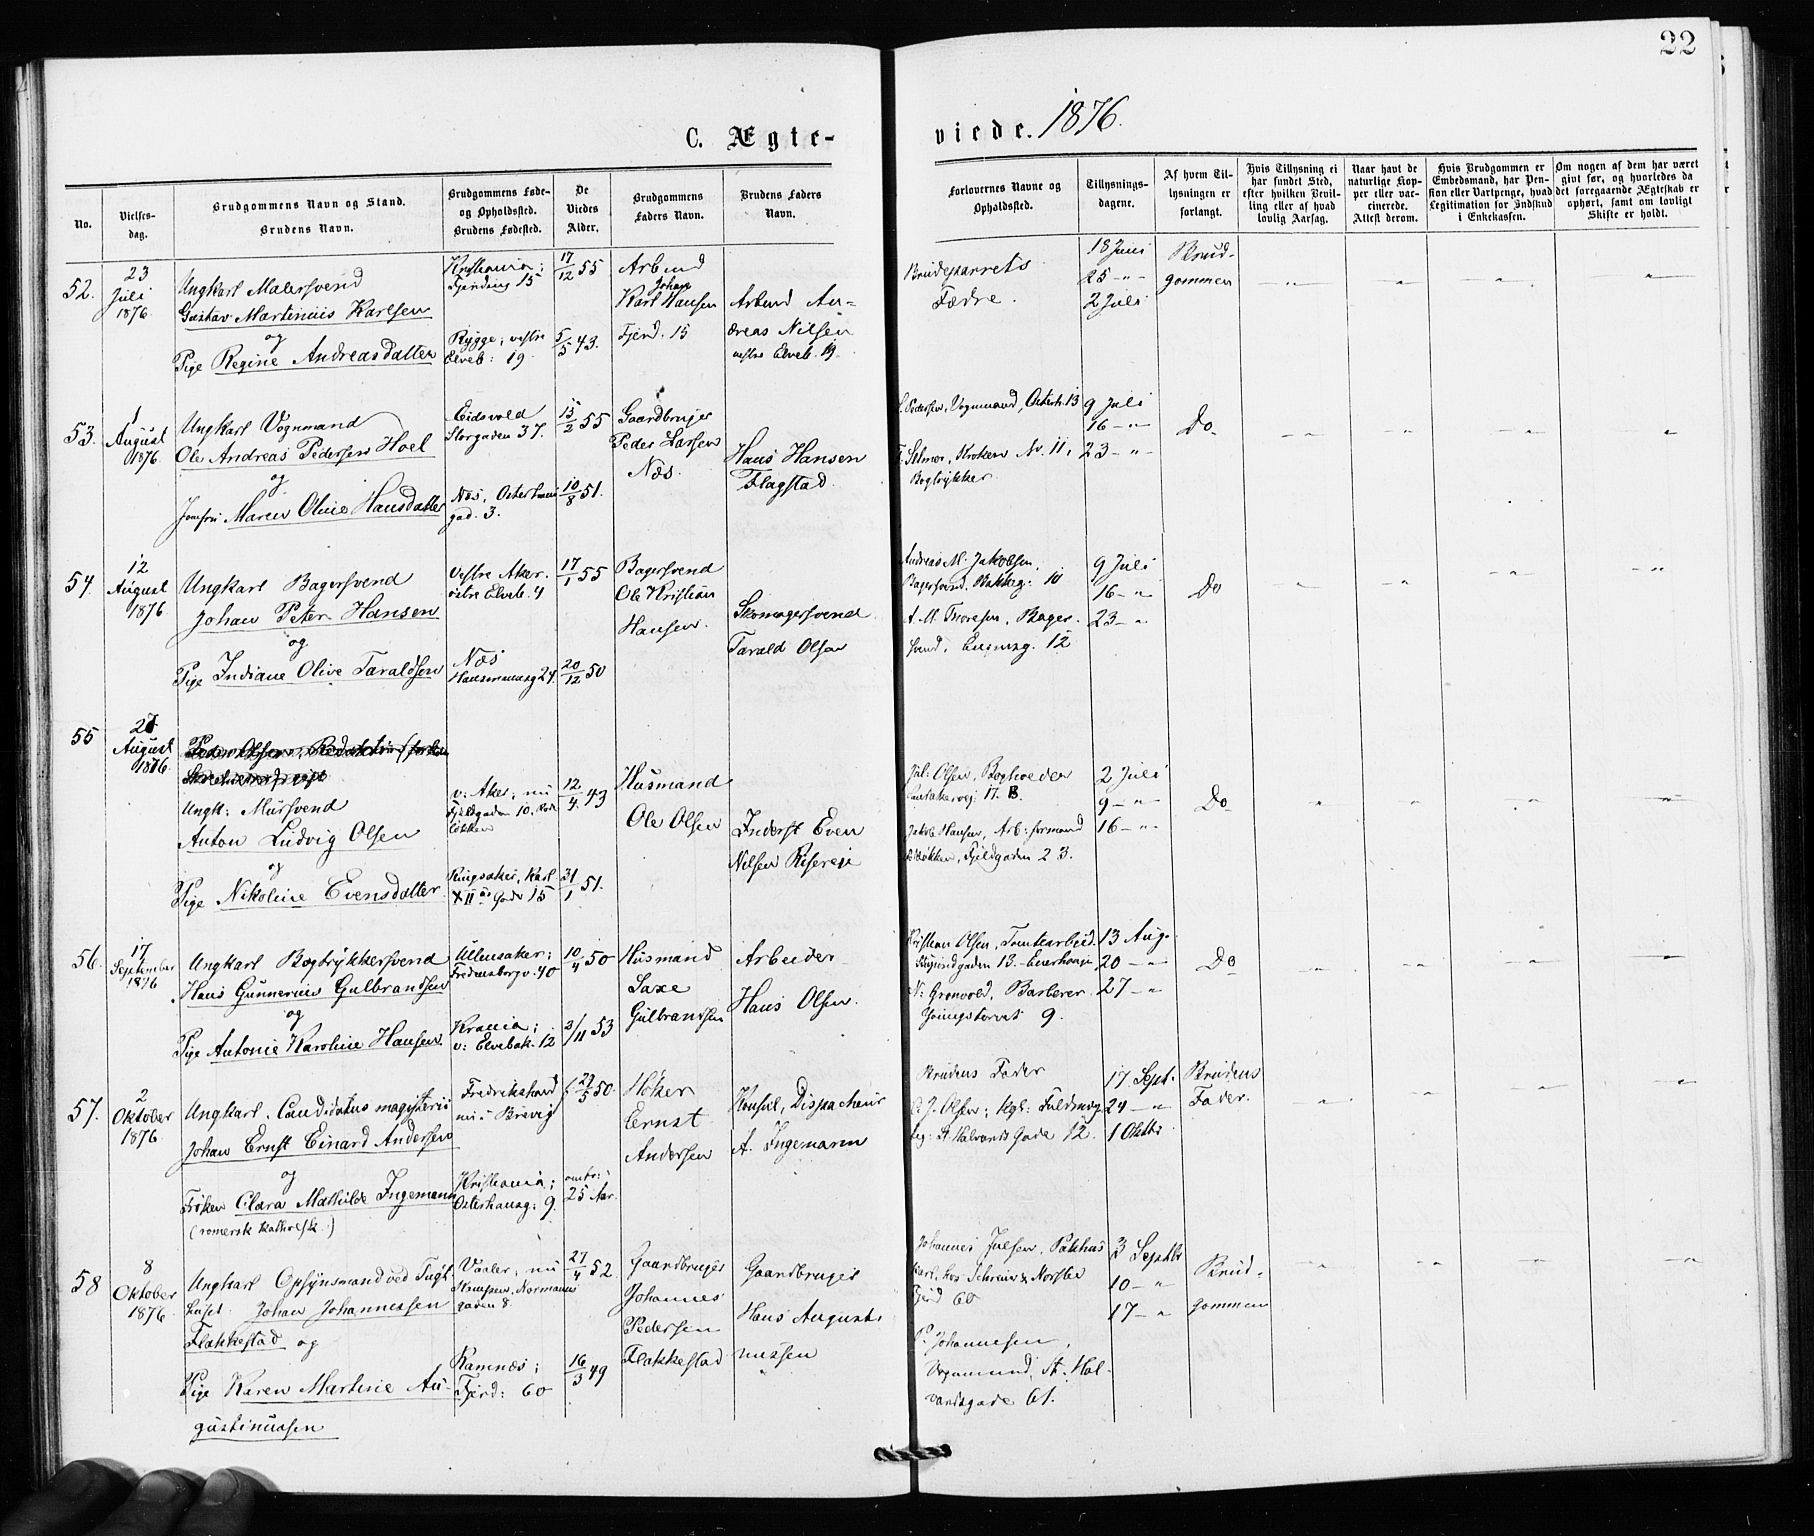 22
C. Ægte-
viede. 1876.
No.
Vielses-
dag.
Brudgommens Navn og Stand.
Brudens Navn.
Brudgommens Føde-
og Opholdssted.
Brudens Fødested.
De
Viedes
Alder.
Brudgommens
Faders Navn.
Brudens Faders
Navn.
Forlovernes Navne og
Opholdssted.
Tillysnings-
dagene.
Af hvem Til-
lysningen er
forlangt.
Hvis Tillysning ei
har fundet Sted,
efter hvilken Bevil-
ling eller af hvad
lovlig Aarsag.
Naar havt de
naturlige Kop-
per eller vac-
cinerede.
Attest derom.
Hvis Brudgommen er
Embedsmand, har Pen-
sion eller Vartpenge, hvad
Legitimation for Indskud
i Enkekassen.
Om nogen af dem har været
givt før, og hvorledes da
det foregaaende Ægteskab er
ophørt, samt om lovligt
Skifte er holdt.
52.
23
Juli
1876
Ungkarl Malersvend
Gustav Martinius Karlsen
og
Pige Regine Andreasdatter
Kristiania;
Fjerding 15
Rygge; vestre
Elveb: 19.
17/12 55
5/5 43.
Arbeid
Johan
Karl Hansen
Fjerd. 15
Arbeid An-
dreas Nilsen
vestre Elveb. 19.
Brudeparrets
Fædre.
18 Juni
25 -"-
2 Juli
Brud-
gommen
53.
1
August
1876.
Ungkarl Vognmand
Ole Andreas Pedersen Hoel
og
Jomfru Maren Oline Hansdatter
Eidsvold
Storgaden 37.
Næs, Osterhaus
gad. 3.
15/2 55
10/8 51.
Gaardbruger
Peder Larsen
Næs.
Hans Hansen
Flagstad.
Pedersen, Vognmand, Osterh. 13
Selmer, Kroken No. 11,
Bogtrykker.
9 Juli
16 -"-
23 -"-
Do
54.
12
August
1876
Ungkarl Bagersvend
Johan Peter Hansen
og
Pige Indiane Olive Taraldsen
Vestre Aker.
østre Elveb. 4
Næs
Hausmannsg 24.
17/1 55
20/12 50
Bagersvend
Ole Kristian
Hansen.
Skomagersvend
Tarald Olsen
Andreas M. Jakobsen,
Bagersvend, Bakkeg: 10
A. M. Thoresen, Bager-
svend, Enerhaug. 12
9 Juli
16 -"-
23 -"-
Do
55
27
August
1876.
Ungk: Mursvend
Anton Ludvig Olsen
og
Pige Nikoline Evensdatter
v: Aker; nu
Fjeldgaden 10,
løkken
Ringsaker, Karl
XII's Gade 15
12/4 43
31/1 51.
Husmand
Ole Olsen
Inderst Even
Nilsen Risereie
Jul: Olsen, Boghveder
17. B.
Jakob Hansen, Arb: formand
Fjeldgaden 23.
2 Juli
9 -"-
16 -"-
Do
56.
17
September
1876
Ungkarl Bogtrykkersvend
Hans Gunnerius Gulbrandsen
og
Pige Antonie Karoline Hansen.
Ullensaker;
Fredensborgv. 40
Krania;
v: Elvebak. 12
10/4 50
2/11 53
Husmand
Saxe
Gulbrandsen
Arbeider
Hans Olsen.
Kristian Olsen, Tomtearbeid.
Sigurdgaden 13. Enerhaugen
N: Grønvold, Barberer
Youngstorvet 9.
13 Aug.
20 -"-
27 -"-
Do
57.
2
Oktober
1876
Ungkarl, Candidatus magisterii
Johan Ernst Einard Andersen
og
Frøken Clara Mathilde Ingemann
(romersk katholsk.)
Fredrikshavn
nu i Brevig
Kristiania;
Osterhausg: 9.
27/5 50.
omtr:
25 Aar.
Høker
Ernst
Andersen
Konsul, Dispacheur
A. Ingemann
Brudens Fader
C. J. Olsen; Kgl: Fuldmæg-
tig: St Halvards Gade 12.
17 Sept.
24 -"-
1 Oktbr
Brudens
Fader.
58
8
Oktober
1876.
Ungkarl Opsynsmand ved Tugt-
huset. Johan Johannessen
Flakkestad og
Pige Karen Martine Au-
gustinussen
Vaaler, nu
Kampen, Normanns
gaden 8.
Ramnæs;
Fjerd: 60
27/4 52.
16/3 49
Gaardbruger
Johannes
Pedersen
Flakkestad
Gaardbruger
Hans Augusti-
nussen
Johannes Julsen, Pakhus
karl, hos Schreiner & Norstec
Fjerd 60
P. Johannesen,
Vognmand, St. Hal-
vardsgade 61.
3 Septbr
10 -"-
17 -"-
Brud-
gommen